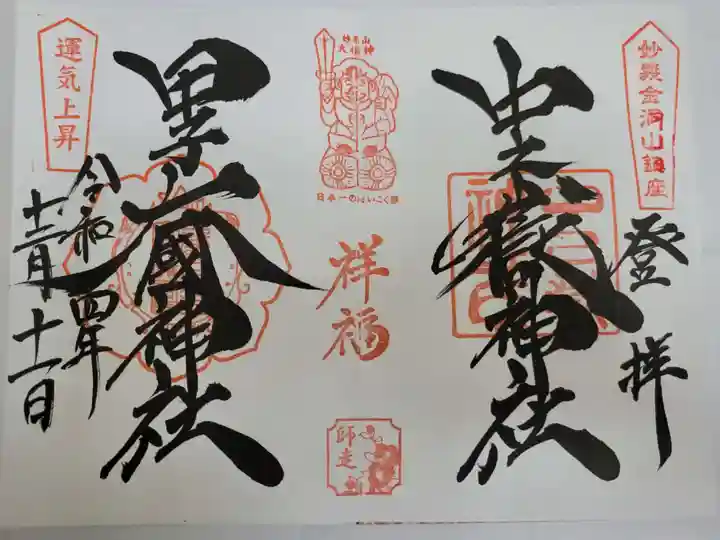 妙義金洞山鎮座
登拝
中之嶽神社
妙義山
大国神
日本一のだいこく様
祥福
師走
甲子大國神社
運気上昇
令和四年
十二月十一日